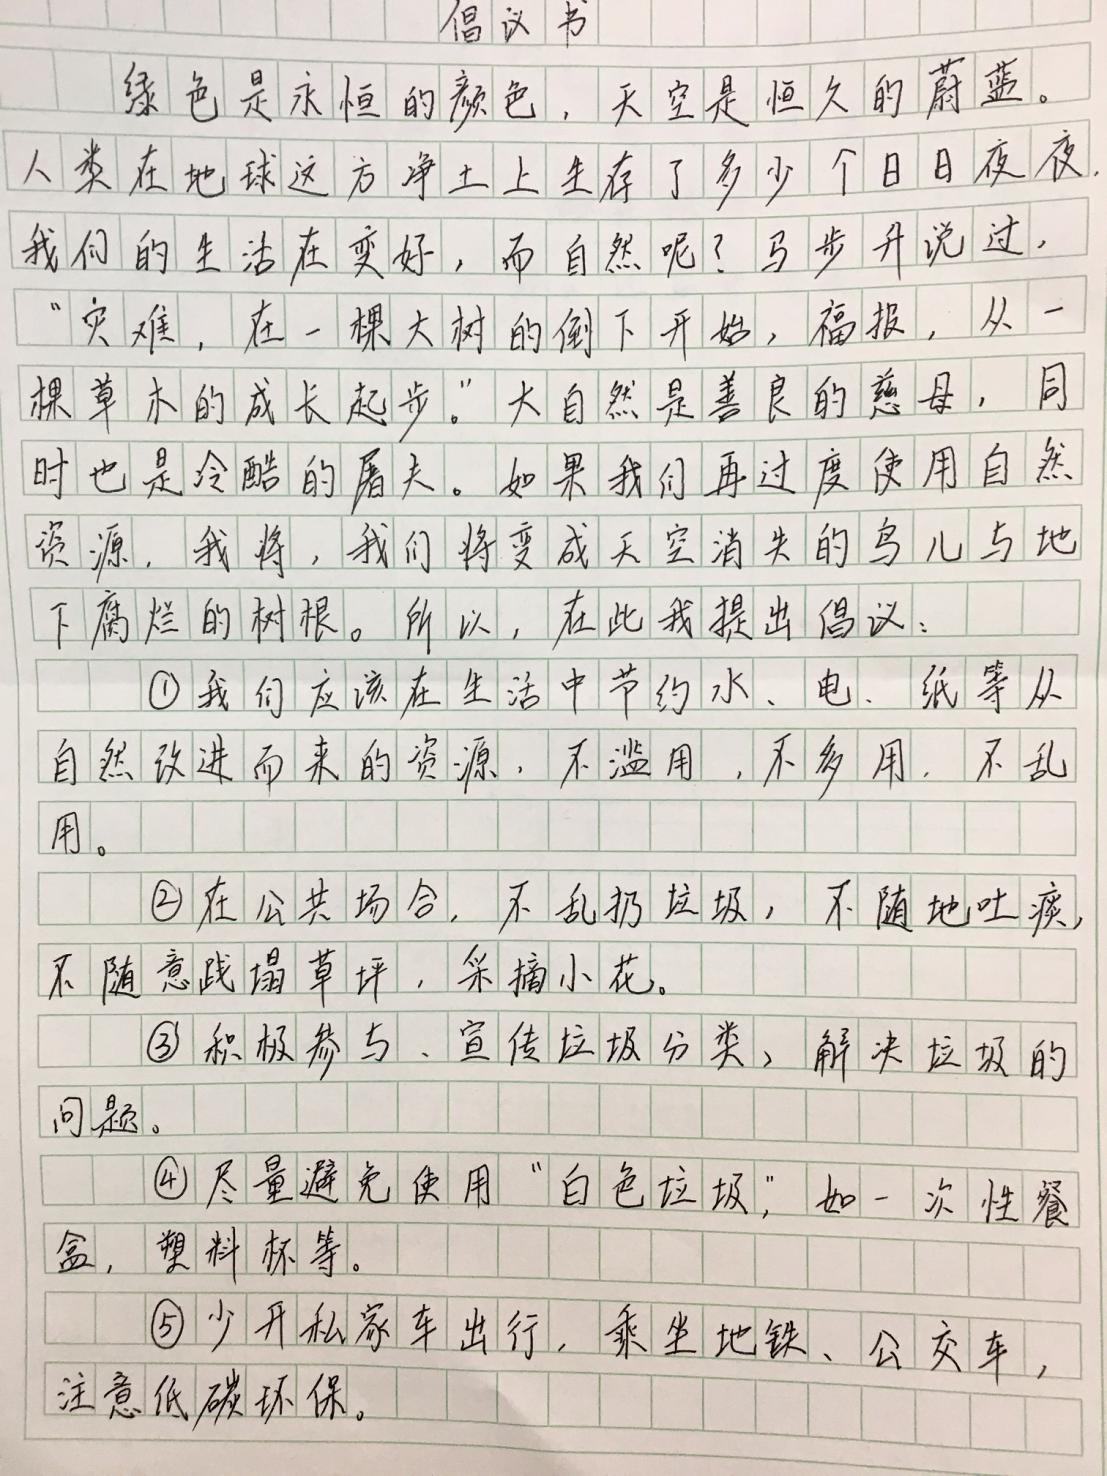 倡议书
绿色是永恒的颜色，天空是恒久的蔚蓝。
人类在地球这方净土上生存了多少个日日夜夜，
我们的生活在变好，而自然呢？马步升说过，
“灾难，在一棵大树的倒下开始，福报，从一
棵草木的成长起步。”大自然是善良的慈母，同
时也是冷酷的屠夫。如果我们再过度使用自然
资源，我将，我们将变成天空消失的鸟儿与地
下腐烂的树根。所以，在此我提出倡议：
①我们应该在生活中节约水、电、纸等从
自然改进而来的资源，不滥用，不多用，不乱
用。
②在公共场合，不乱扔垃圾，不随地吐痰，
不随意践塌草坪，采摘小花。
③积极参与、宣传垃圾分类，解决垃圾的
问题。
④尽量避免使用“白色垃圾”，如一次性餐
盒，塑料杯等。
⑤少开私家车出行，乘坐地铁、公交车，
注意低碳环保。